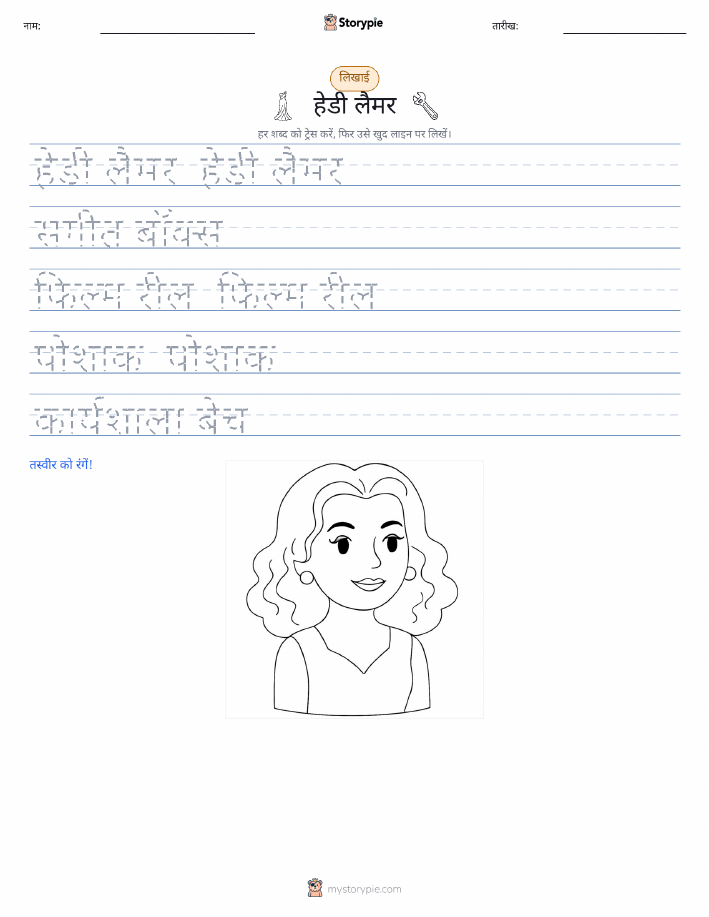 नाम:
Storypie
तारीख:
लिखाई
हेडी लैमर
हर शब्द को ट्रेस करें, फिर उसे खुद लाइन पर लिखें।
हेडी लैमर हेडी लैमर
संगीत बॉक्स
फिल्म रील फिल्म रील
पोशाक पोशाक
कार्यशाला बेंच
तस्वीर को रंगें!
mystorypie.com